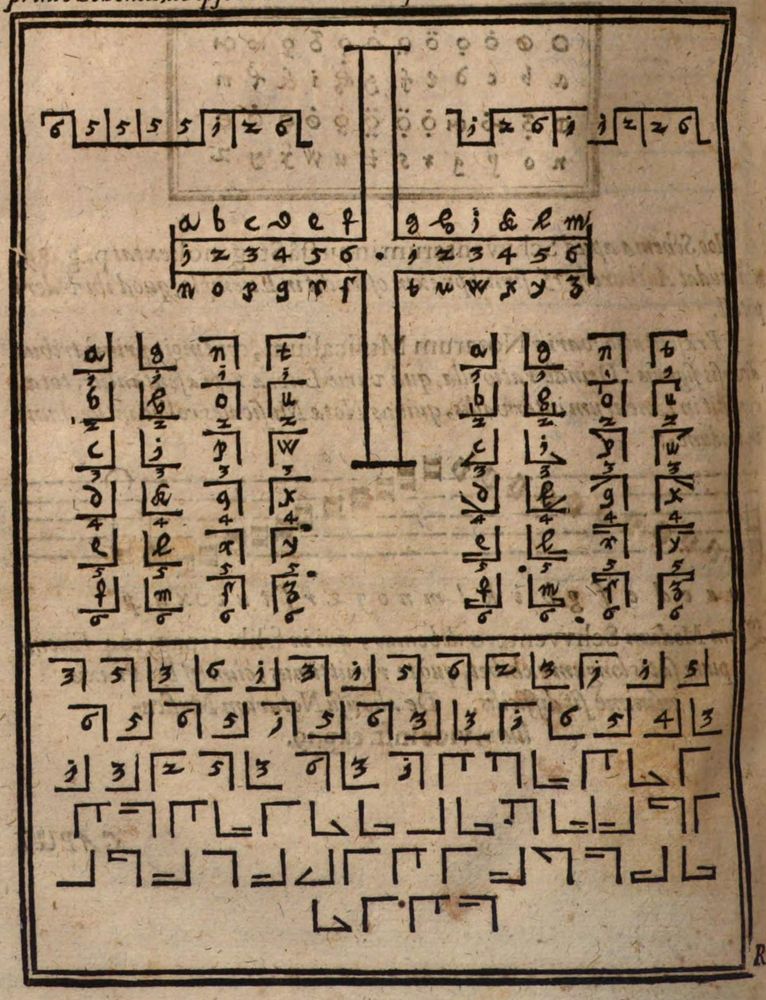 6 5 5 5 5 j 2 6 j 2 6 j j 2 2 6
a b c d e f g h j k l m
j 2 3 4 5 6 . j 2 3 4 5 6
n o p q r s t u w x y z
a g n t a g n t
j j j j j j j j
b h o u b h o u
2 2 2 2 2 2 2 2
c j p w c j p w
3 3 3 3 3 3 3 3
d k q x d k q x
4 4 4 4 4 4 4 4
e l r y e l r y
5 5 5 5 5 5 5 5
f m s z f m s z
6 6 6 6 6 6 6 6
3 5 3 6 j 3 j 5 6 2 3 j j 5
6 5 6 5 j 5 6 3 3 j 6 5 4 3
j 3 2 5 3 6 3 j
R